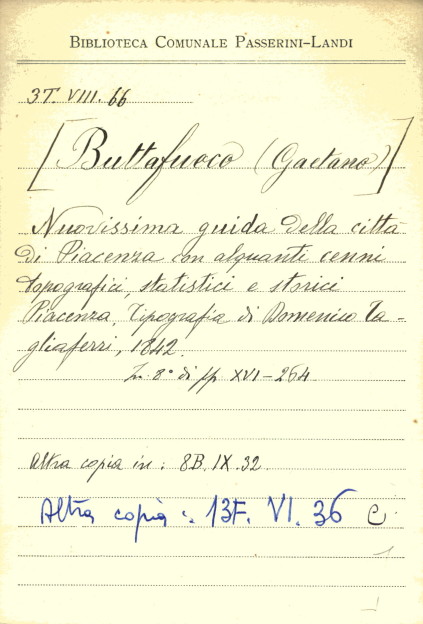 BIBLIOTECA COMUNALE PASSERINI-LANDI
3T. VIII. 66
[Buttafuoco (Gaetano)]
Nuovissima guida della città
di Piacenza con alquanti cenni
topografici, statistici e storici
Piacenza, Tipografia di Domenico Ta-
gliaferri, 1842.
In 8° di pp XVI-264.
Altra copia in: 8B. IX. 32.
Altra copia: 13F. VI. 36 C.